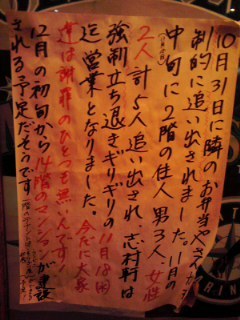 10月31日に隣のお弁当や
制的に追い出されました。11月の
中旬に2階の住人 男3人、女性
2人計5人追い出され、志村軒は
強制立ち退きギリギリの11月18日
迄営業となりました。今だに大家
達は謝罪のひとつも無いんです!
12月の初旬から14階のマンションが建設
される予定だそうです